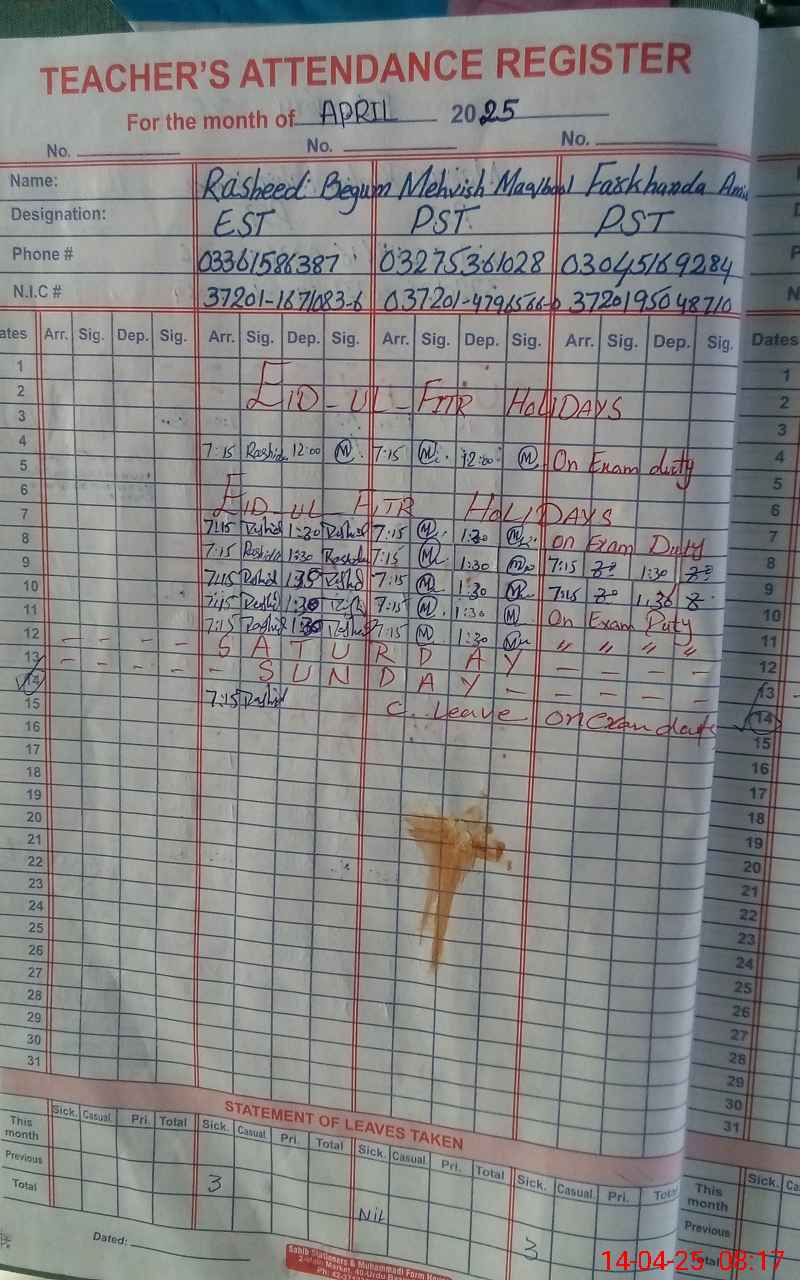 TEACHER'S ATTENDANCE REGISTER
For the month of APRIL 2025
No. No. No.
Name: Rasheed Begum Mehvish Maqbool Farkhanda
Designation: EST PST PST
Phone # 03361586387 03275361028 03045169284
N.I.C # 37201-1671083-6 037201-4796566-0 3720195048710
ates Arr. Sig. Dep. Sig. Arr. Sig. Dep. Sig. Arr. Sig. Dep. Sig. Arr. Sig. Dep. Sig. Dates
1 1
2 EID-UL-FITR HOLIDAYS 2
3 3
4 7:15 Rashida 12:00 M 7:15 M 12:00 M On Exam duty 4
5 5
6 EID-UL-FITR HOLIDAYS 6
7 7:15 Rashid 1:30 Rashid 7:15 M 1:30 M On Exam Duty 7
8 7:15 Rashida 1:30 Rashida 7:15 M 1:30 M 7:15 1:30 8
9 7:15 Rashid 1:35 Rashid 7:15 M 1:30 M 7:15 1:30 9
10 7:15 Rashid 1:30 7:15 M 1:30 M On Exam Duty 10
11 7:15 Rashid 1:30 Rashid 7:15 M 1:30 M " " " " 11
12 - - - - S A T U R D A Y - - - - 12
13 - - - - - S U N D A Y - - - - - 13
14 7:15 Rashid C. Leave on exam duty 14
15 15
16 16
17 17
18 18
19 19
20 20
21 21
22 22
23 23
24 24
25 25
26 26
27 27
28 28
29 29
30 30
31 31
STATEMENT OF LEAVES TAKEN
Sick. Casual. Pri. Total Sick. Casual. Pri. Total Sick. Casual. Pri. Total Sick. Casual. Pri. Total Sick.
This month This month
Previous 3 Previous
Total Nil 3 Total
Dated:
Sabib Stationers & Muhammadi Form House
2-Main Market, 40-Urdu
14-04-25 08:17